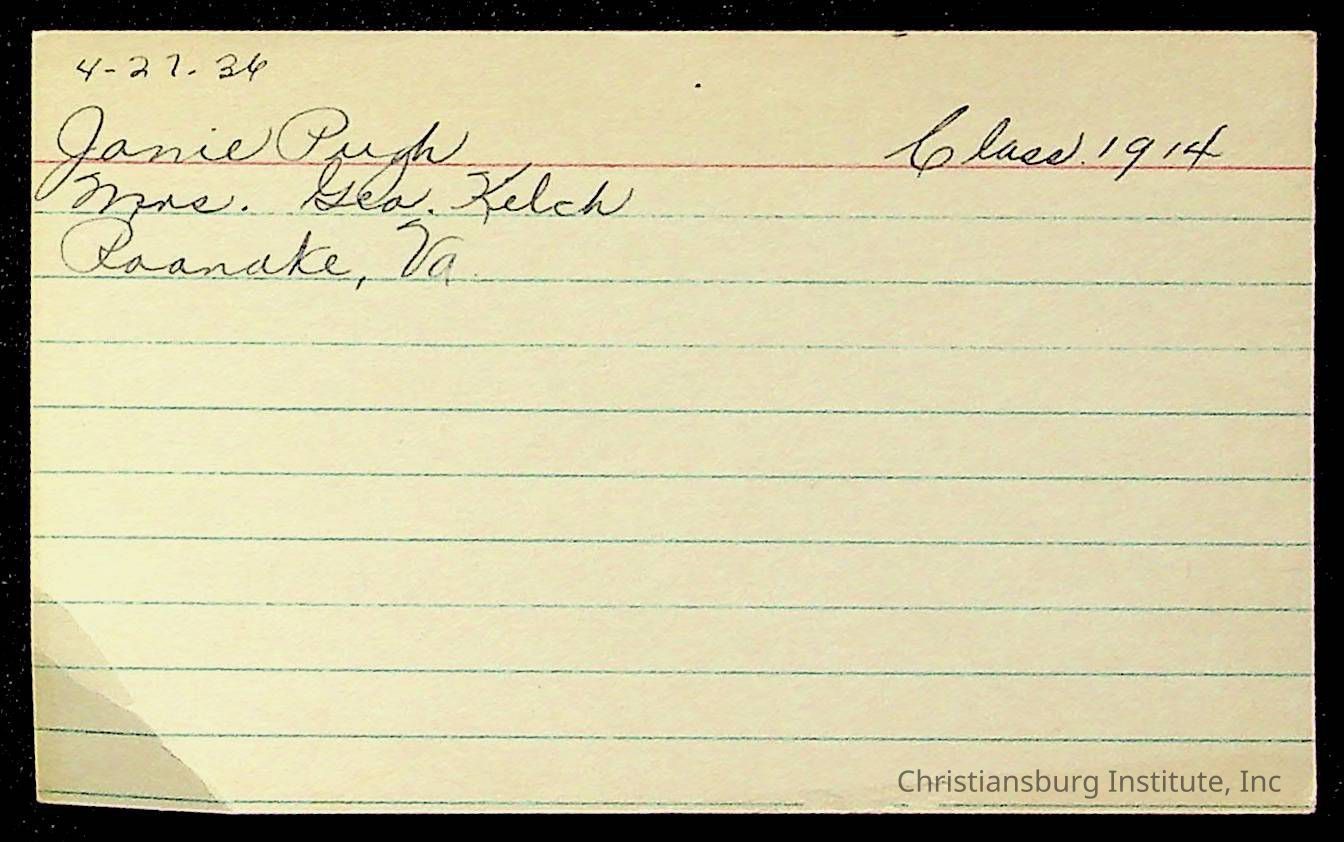 4-27-36
Janie Pugh Class 1914
Mrs. Geo. Kelch
Roanoke, Va.
Christiansburg Institute, Inc